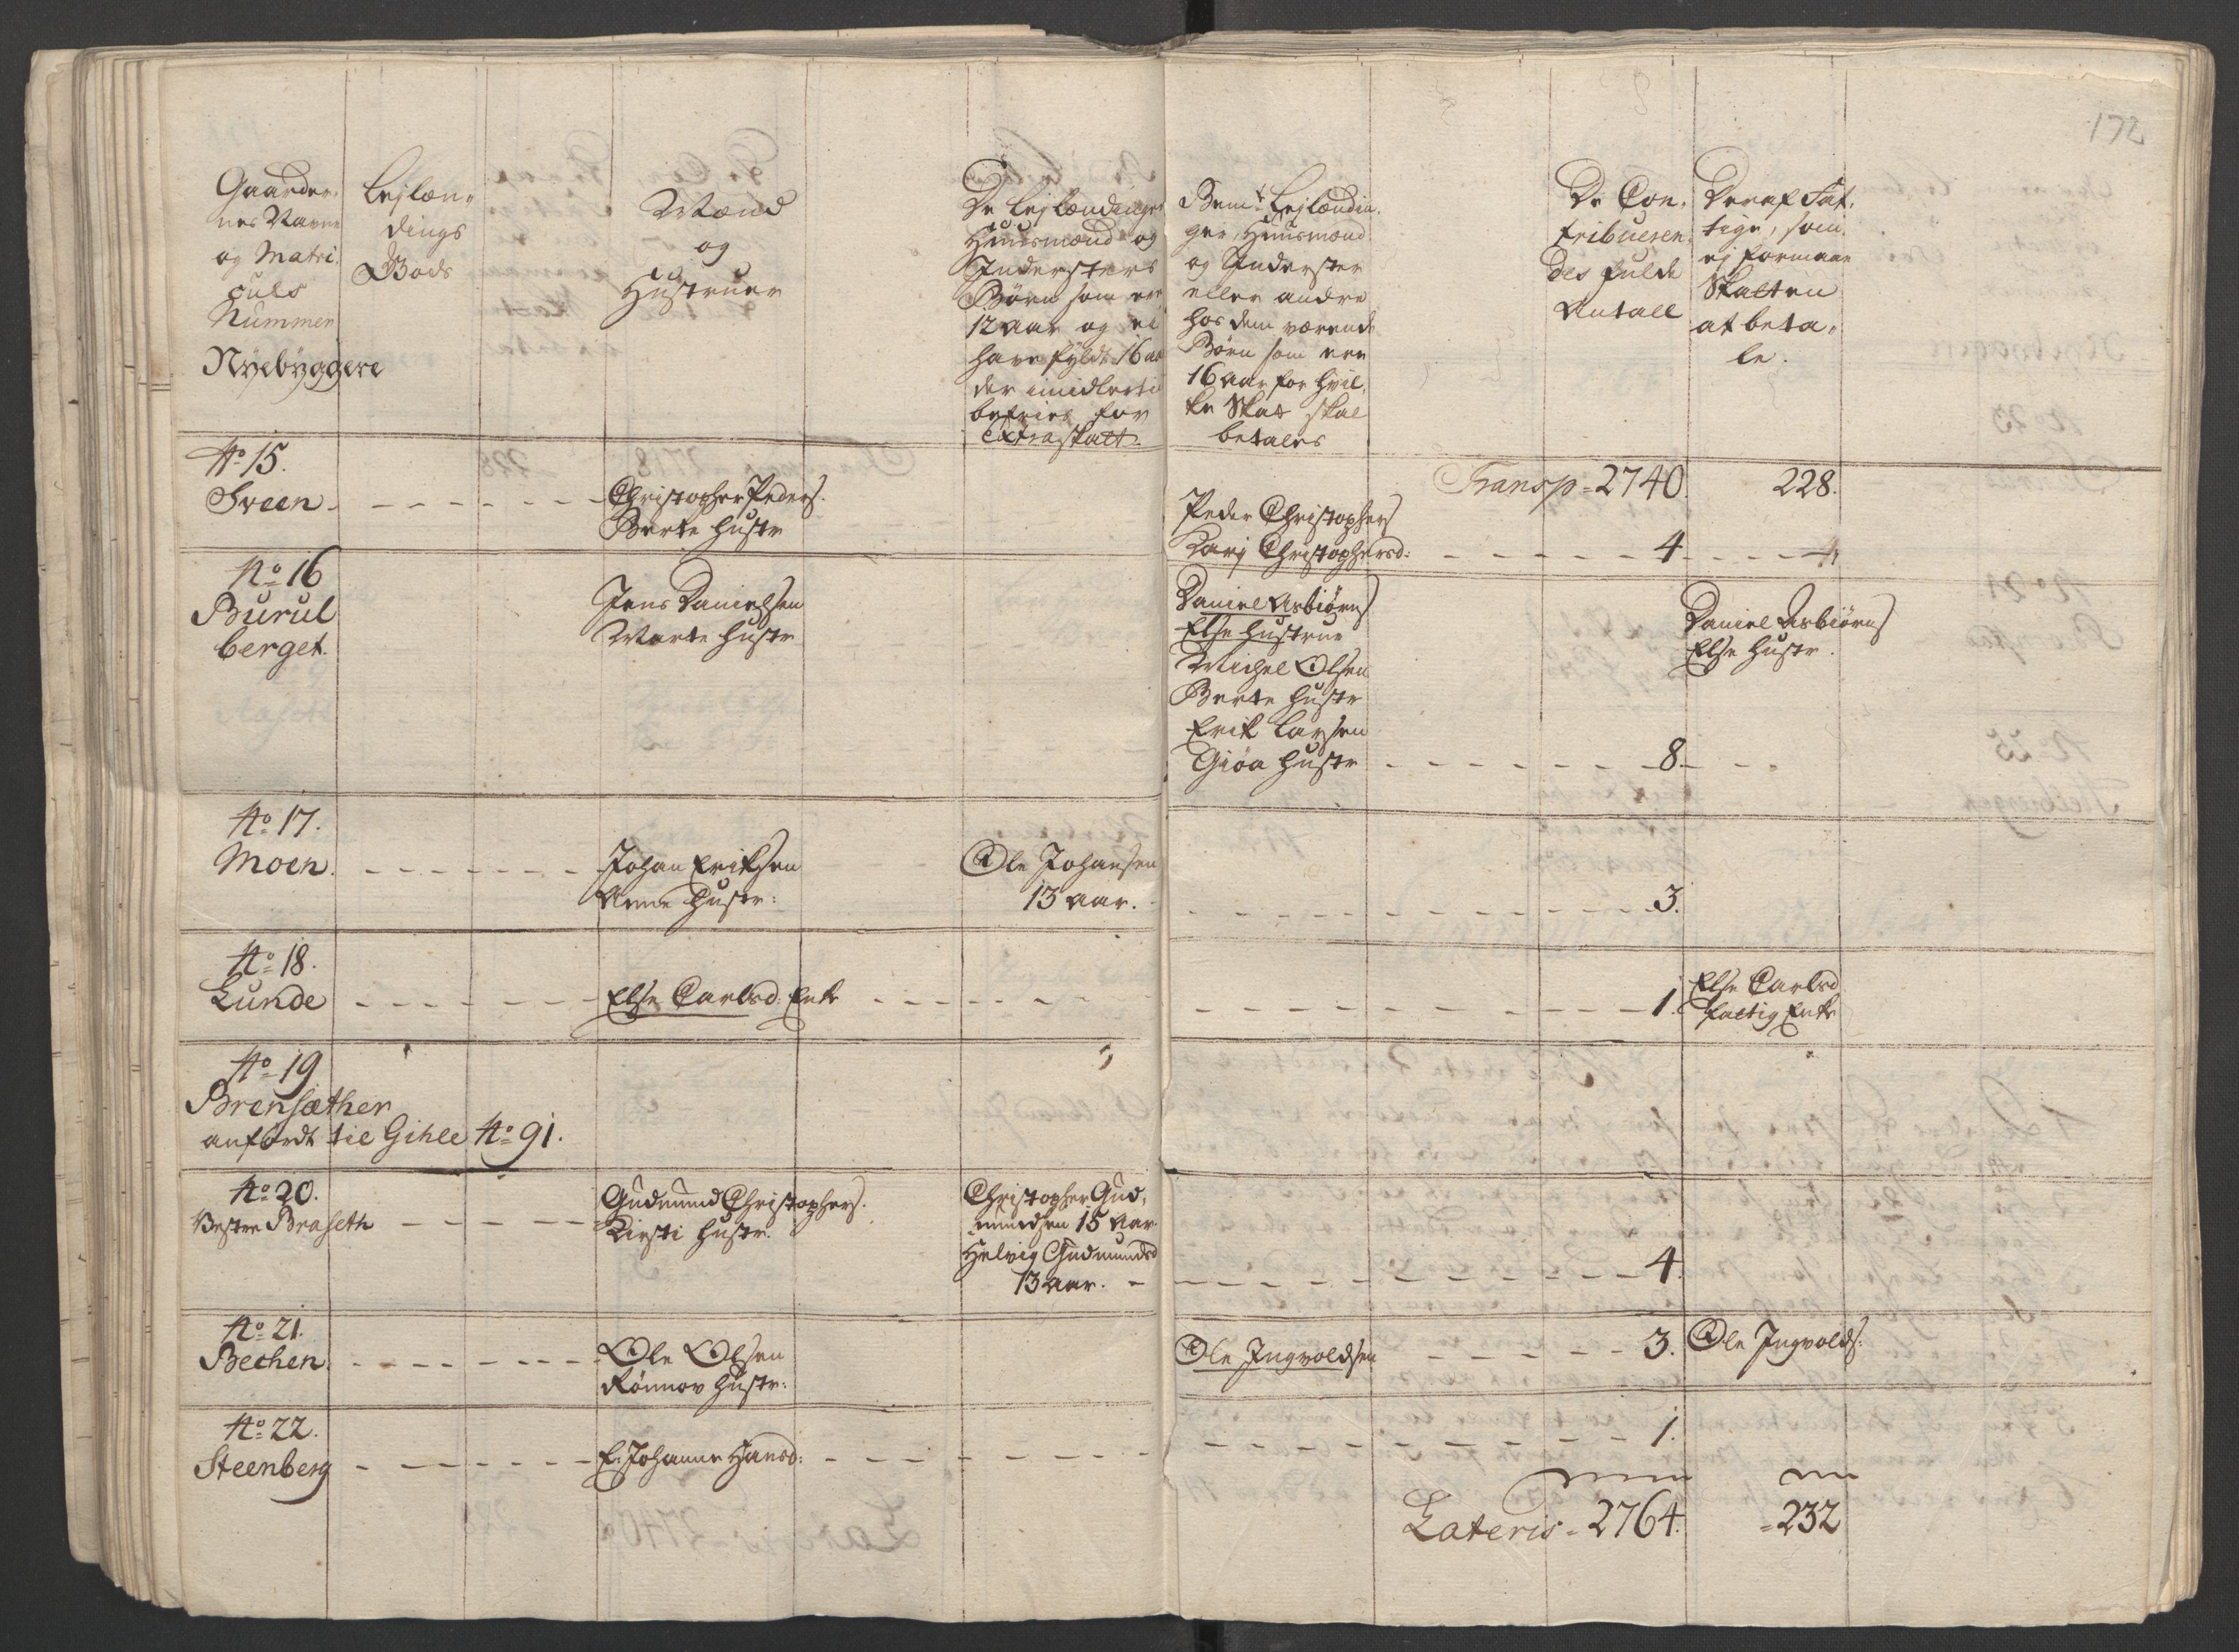 172
Gaarder-
nes Navne
og Matri-
culs
Nummer
Nÿebÿggere
Lejlæn-
dings
Bøds
Mænd
og
Hustruer
De Lejlændinger
Huusmænd og
Indersters
Børn som ere
12 aar og ei
have fyldt 16 aar
der imidlertid
befries for
Extraskatt.
Bemte Lejlændin-
ger, Huusmænd
og Inderster
eller andre
hos dem værende
Børn som ere
16 aar for hvil-
ke Skat skal
betales
De Con-
tribueren-
des fulde
Antall
Deraf Fat-
tige, som
ej formaar
Skatten
at beta-
le.
Transp = 2740. 228.
No 15.
Sveen.
Christopher Peders.
Berte Hustr
Peder Christophers
Karj Christophersd: 4
No 16
Burul
berget.
Jens Danielsen
Marte Hustr
Daniel Asbiørns
Else Hustrue
Michel Olsen
Berte Hustr
Erik Larsen
Giøa Hustr 8.
Daniel Asbiørns
Else Hustr.
No 17.
Moen.
Johan Eriksen
Anne Hustr:
Ole Johansen
13 aar. 3.
No 18.
Lunde
Else Carlsd: Enke 1.
Else Carlsd
fattig Enke
No 19
Brensæther
anførdt til Gihle No 91.
No 20.
Vestre Braseth
Gudmund Christophers.
Kirsti Hustr.
Christopher Gud-
mundsen 15 Aar
Helvig Gudmundsd
13 aar. 4.
No 21.
Bechen.
Ole Olsen
Rönnov Hustr:
Ole Ingvoldsen 3. Ole Ingvolds:
No 22.
Steenberg
E. Johanne Hansd: 1.
Lateris = 2764. = 232